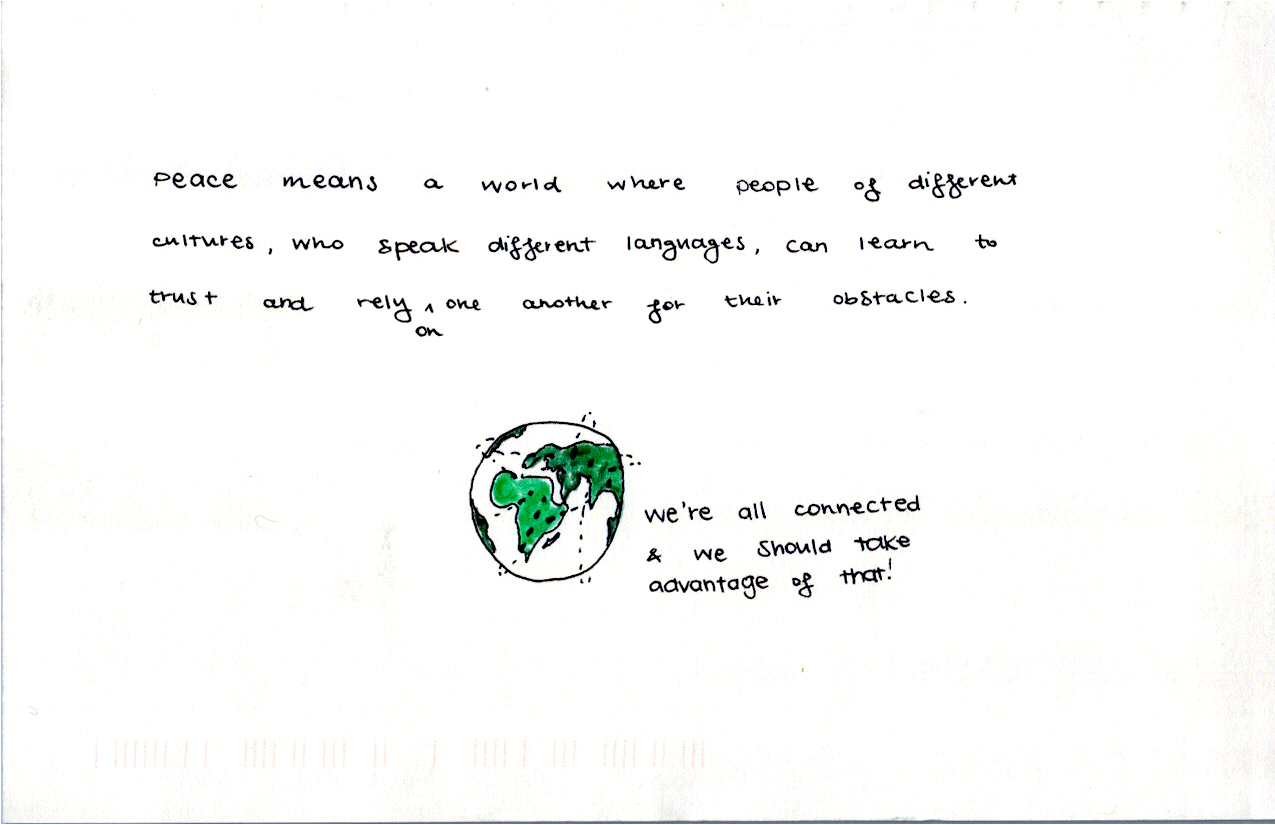 Peace means a world where people of different
cultures, who speak different languages, can learn to
trust and rely ^ one another for their obstacles.
on
we're all connected
& we should take
advantage of that!